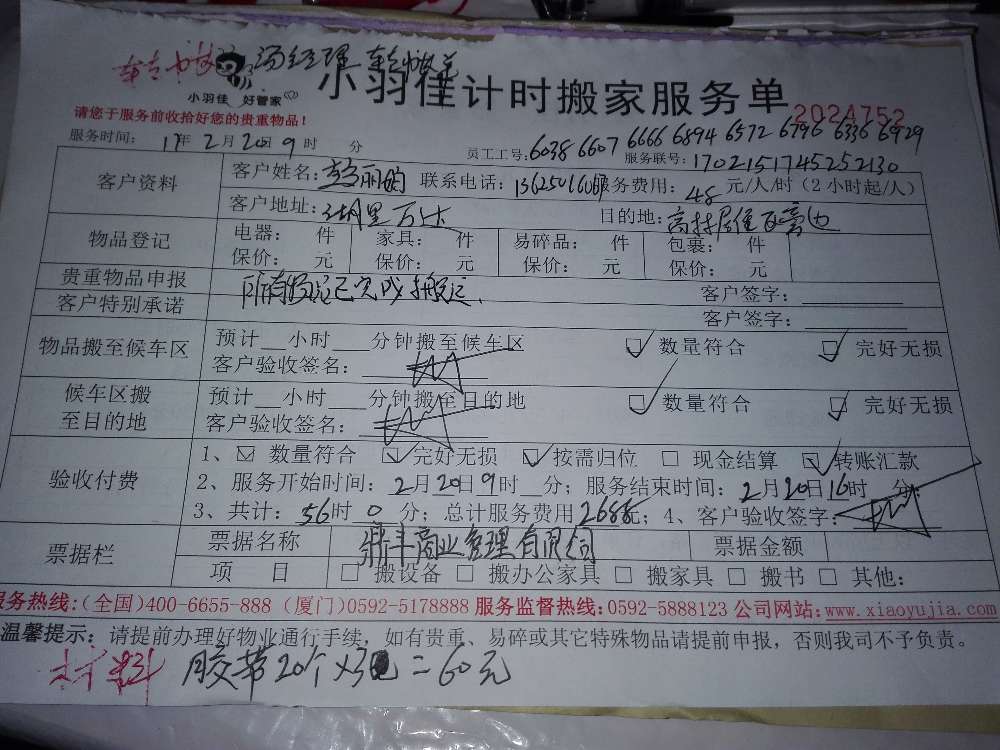 汤经理
小羽佳 好管家
小羽佳计时搬家服务单
2024752
请您于服务前收拾好您的贵重物品!
服务时间: 17年2月20日9时 分
员工工号: 6038 6607 6666 6894 6572 6796 6336 6929
服务联号: 1702151745252130
客户资料
客户姓名: 丽 联系电话: 服务费用: 48 元/人/时(2小时起/人)
客户地址: 湖里万达 目的地:
物品登记
电器: 件 家具: 件 易碎品: 件 包裹: 件
保价: 元 保价: 元 保价: 元 保价: 元
贵重物品申报 客户签字:
客户特别承诺 所有物品已完成搬运、 客户签字:
物品搬至候车区
预计 小时 分钟搬至候车区 ☑ 数量符合 ☑ 完好无损
客户验收签名:
候车区搬至目的地
预计 小时 分钟搬至目的地 ☑ 数量符合 ☑ 完好无损
客户验收签名:
验收付费
1、☑ 数量符合 ☑ 完好无损 ☑ 按需归位 □ 现金结算 ☑ 转账汇款
2、服务开始时间: 2月20日9时 分; 服务结束时间: 2月20日16时 分;
3、共计: 56时 0 分; 总计服务费用 2688元; 4、客户验收签字:
票据栏
票据名称 鼎丰商业管理有限公司 票据金额
项 目 □ 搬设备 □ 搬办公家具 □ 搬家具 □ 搬书 □ 其他:
服务热线:(全国)400-6655-888 (厦门)0592-5178888 服务监督热线:0592-5888123 公司网站:www.xiaoyujia.com
温馨提示: 请提前办理好物业通行手续,如有贵重、易碎或其它特殊物品请提前申报,否则我司不予负责。
材料 胶带20个×3元=60元